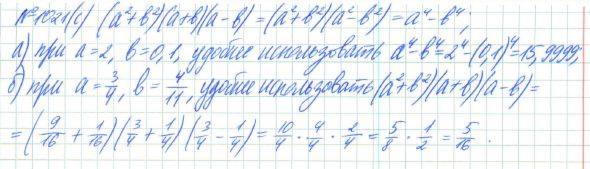 №1021(с) (a²+b²)(a+b)(a-b)=(a²+b²)(a²-b²)=a⁴-b⁴;
а) при a=2, b=0,1, удобнее использовать a⁴-b⁴=2⁴-(0,1)⁴=15,9999;
б) при a=3/4, b=4/11, удобнее использовать (a²+b²)(a+b)(a-b)=
=(9/16+1/16)(3/4+1/4)(3/4-1/4)=10/4·4/4·2/4=5/8·1/2=5/16.